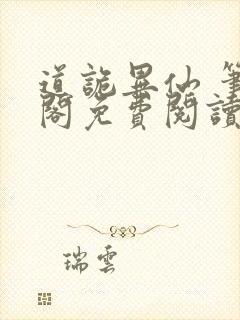 道詭異仙 筆
閣免費閱讀
瑞雲